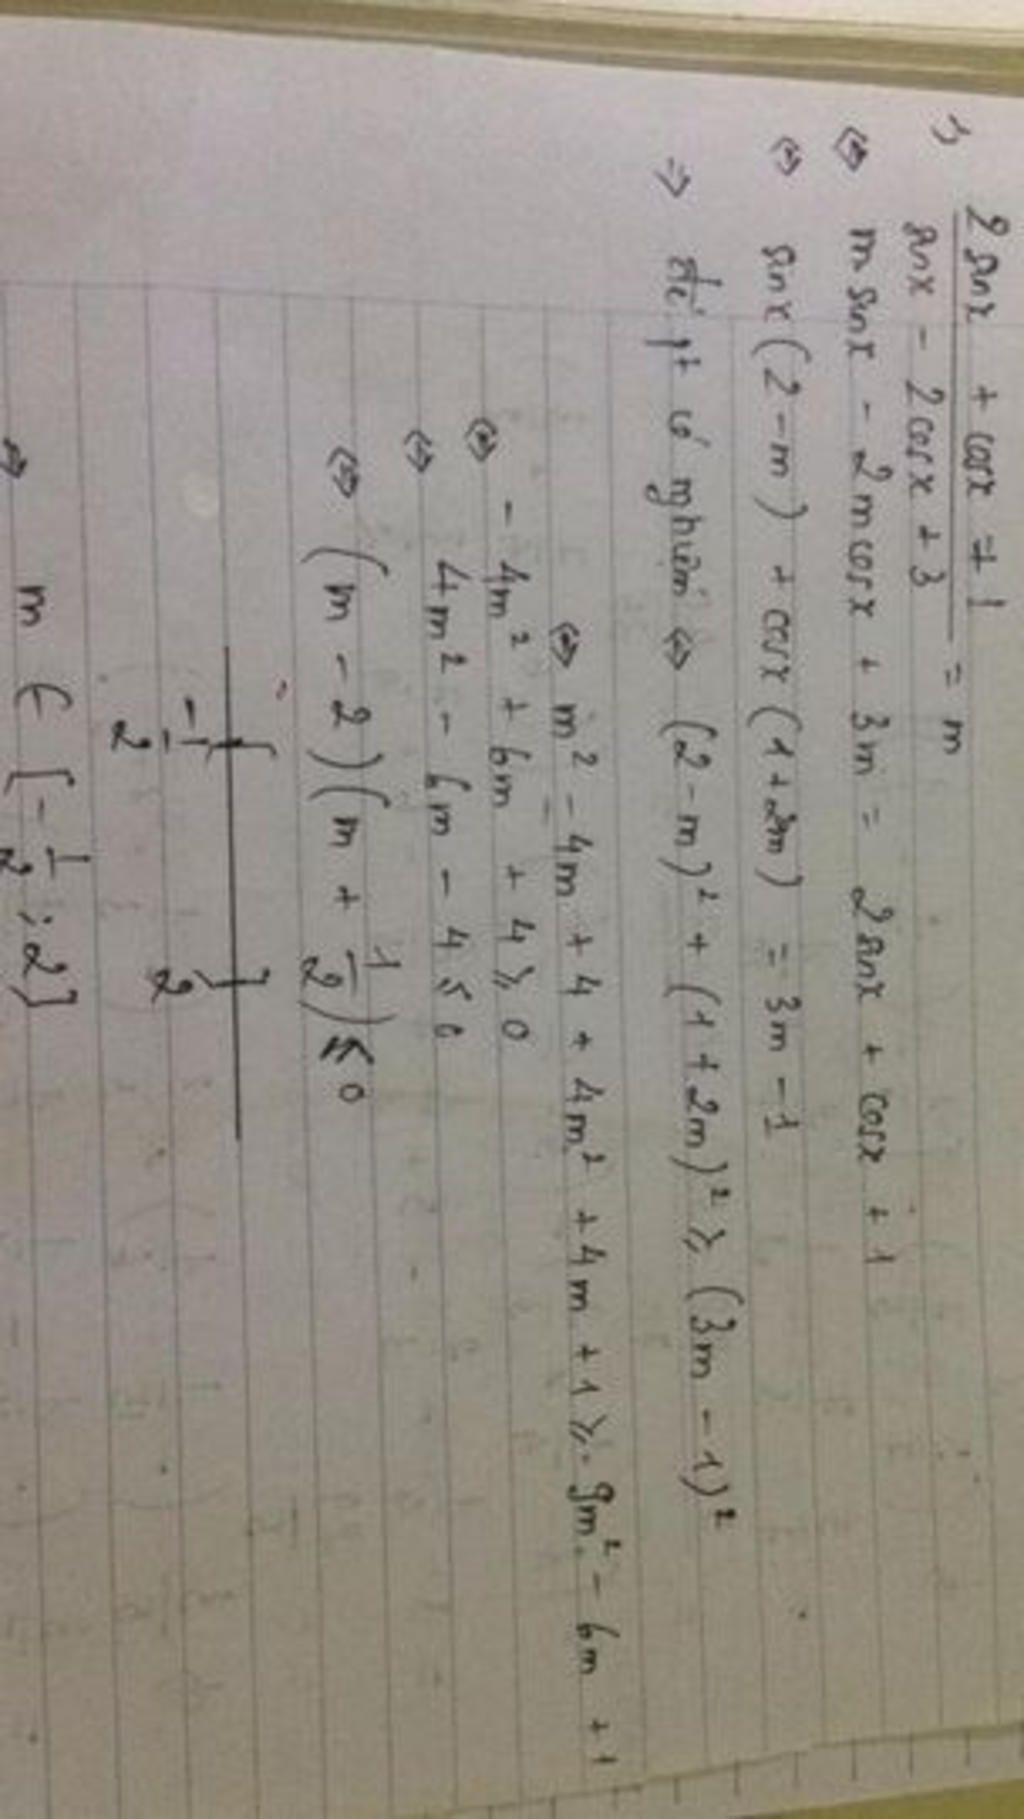 1) (2 sinx + cosx + 1) / (sinx - 2cosx + 3) = m
⇔ m sinx - 2m cosx + 3m = 2 sinx + cosx + 1
⇔ sinx (2 - m) + cosx (1 + 2m) = 3m - 1
⇒ để pt có nghiệm ⇔ (2 - m)² + (1 + 2m)² ⩾ (3m - 1)²
⇔ m² - 4m + 4 + 4m² + 4m + 1 ⩾ 9m² - 6m + 1
⇔ - 4m² + 6m + 4 ⩾ 0
⇔ 4m² - 6m - 4 ⩽ 0
⇔ (m - 2)(m + 1/2) ⩽ 0
[ ]
-1/2 2
⇒ m ∈ [-1/2 ; 2]